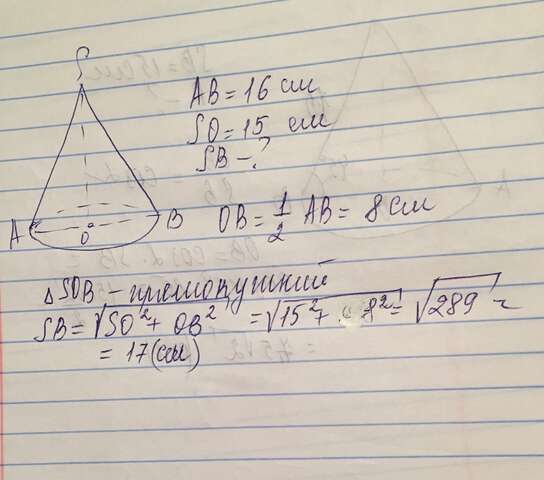 S
AB = 16 см
SO = 15 см
SB - ?
A O B
OB = 1/2 AB = 8 см
△SOB - прямокутний
SB = √SO²+ OB² = √15²+ 8² = √289 =
= 17(см)